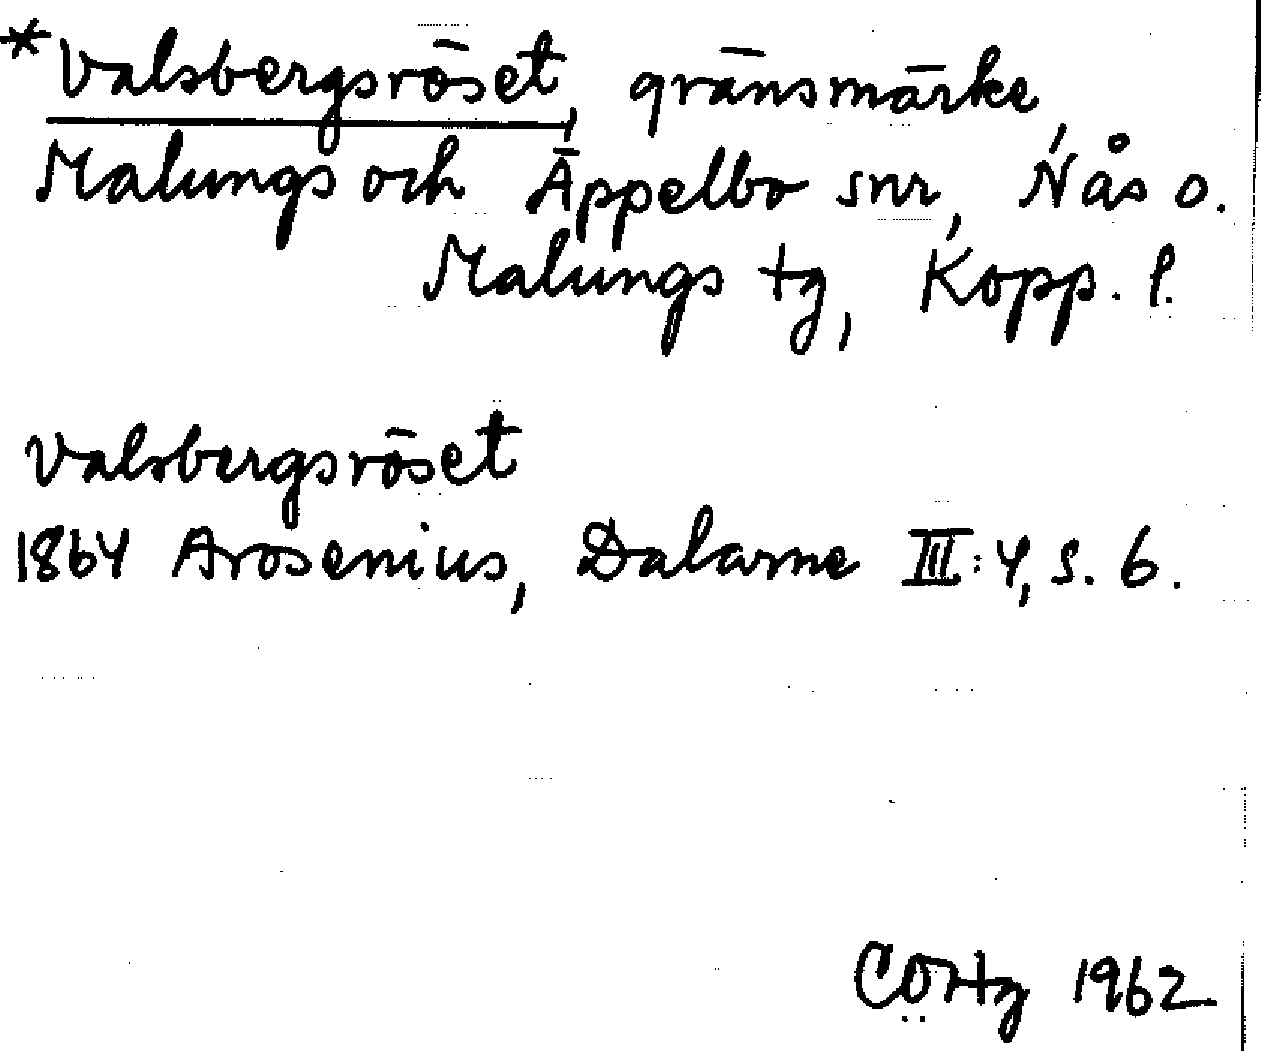 *Valsbergsröset, gränsmärke,
Malungs och Äppelbo snr, Nås o.
Malungs tg, Kopp. l.
Valsbergsröset
1864 Arosenius, Dalarne III:4, s. 6.
CÖrtg 1962